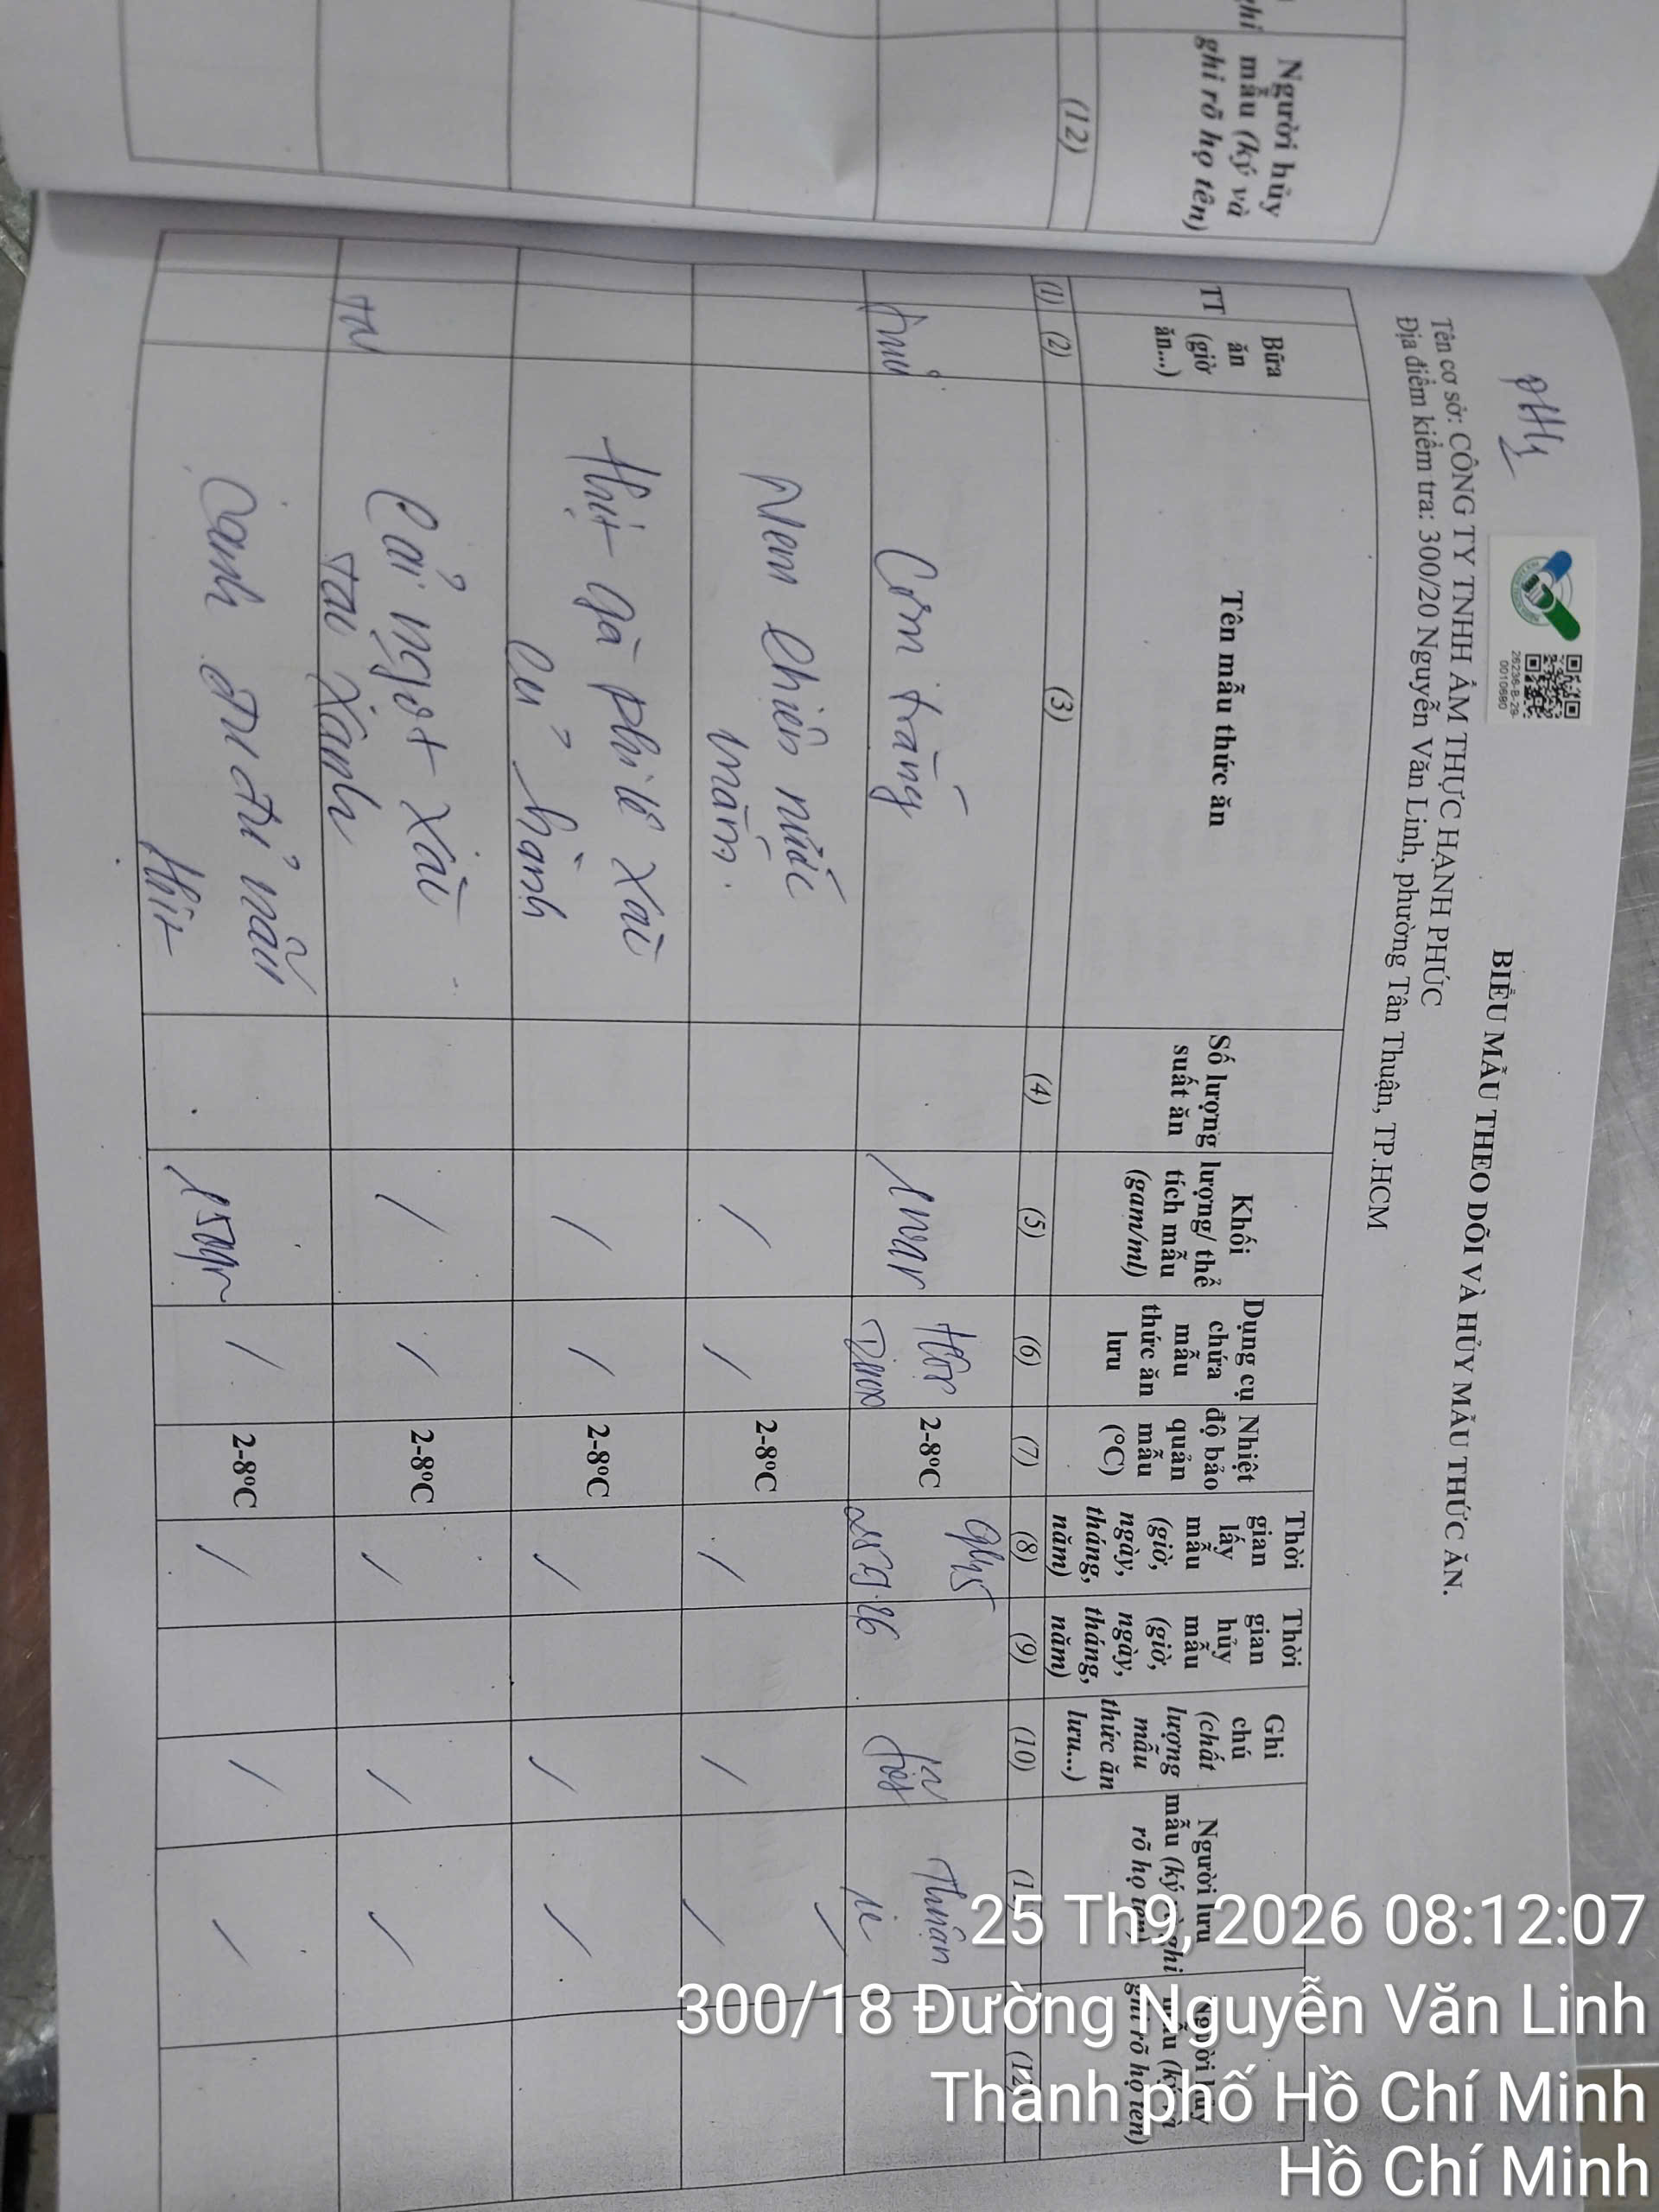 Người hủy
mẫu (ký và
ghi rõ họ tên)
(12)
26236-B-29-
0010680
BIỂU MẪU THEO DÕI VÀ HỦY MẪU THỨC ĂN.
Tên cơ sở: CÔNG TY TNHH ẨM THỰC HẠNH PHÚC
Địa điểm kiểm tra: 300/20 Nguyễn Văn Linh, phường Tân Thuận, TP.HCM
TT
Bữa ăn (giờ ăn...)
Tên mẫu thức ăn
Số lượng suất ăn
Khối lượng/ thể tích mẫu (gam/ml)
Dụng cụ chứa mẫu thức ăn lưu
Nhiệt độ bảo quản mẫu (°C)
Thời gian lấy mẫu (giờ, ngày, tháng, năm)
Thời gian hủy mẫu (giờ, ngày, tháng, năm)
Ghi chú (chất lượng mẫu thức ăn lưu...)
Người lưu mẫu (ký và ghi rõ họ tên)
(1) (2) (3) (4) (5) (6) (7) (8) (9) (10)
Cơm trắng 2-8°C 9h15
25.9.26
Thuận
Nem chiên nước 2-8°C
mắm.
Thịt gà phi lê xào 2-8°C
củ hành
Cải ngọt xào 2-8°C
Canh đu đủ nấu 150gr 2-8°C
thịt
25 Th9, 2026 08:12:07
300/18 Đường Nguyễn Văn Linh
Thành phố Hồ Chí Minh
Hồ Chí Minh